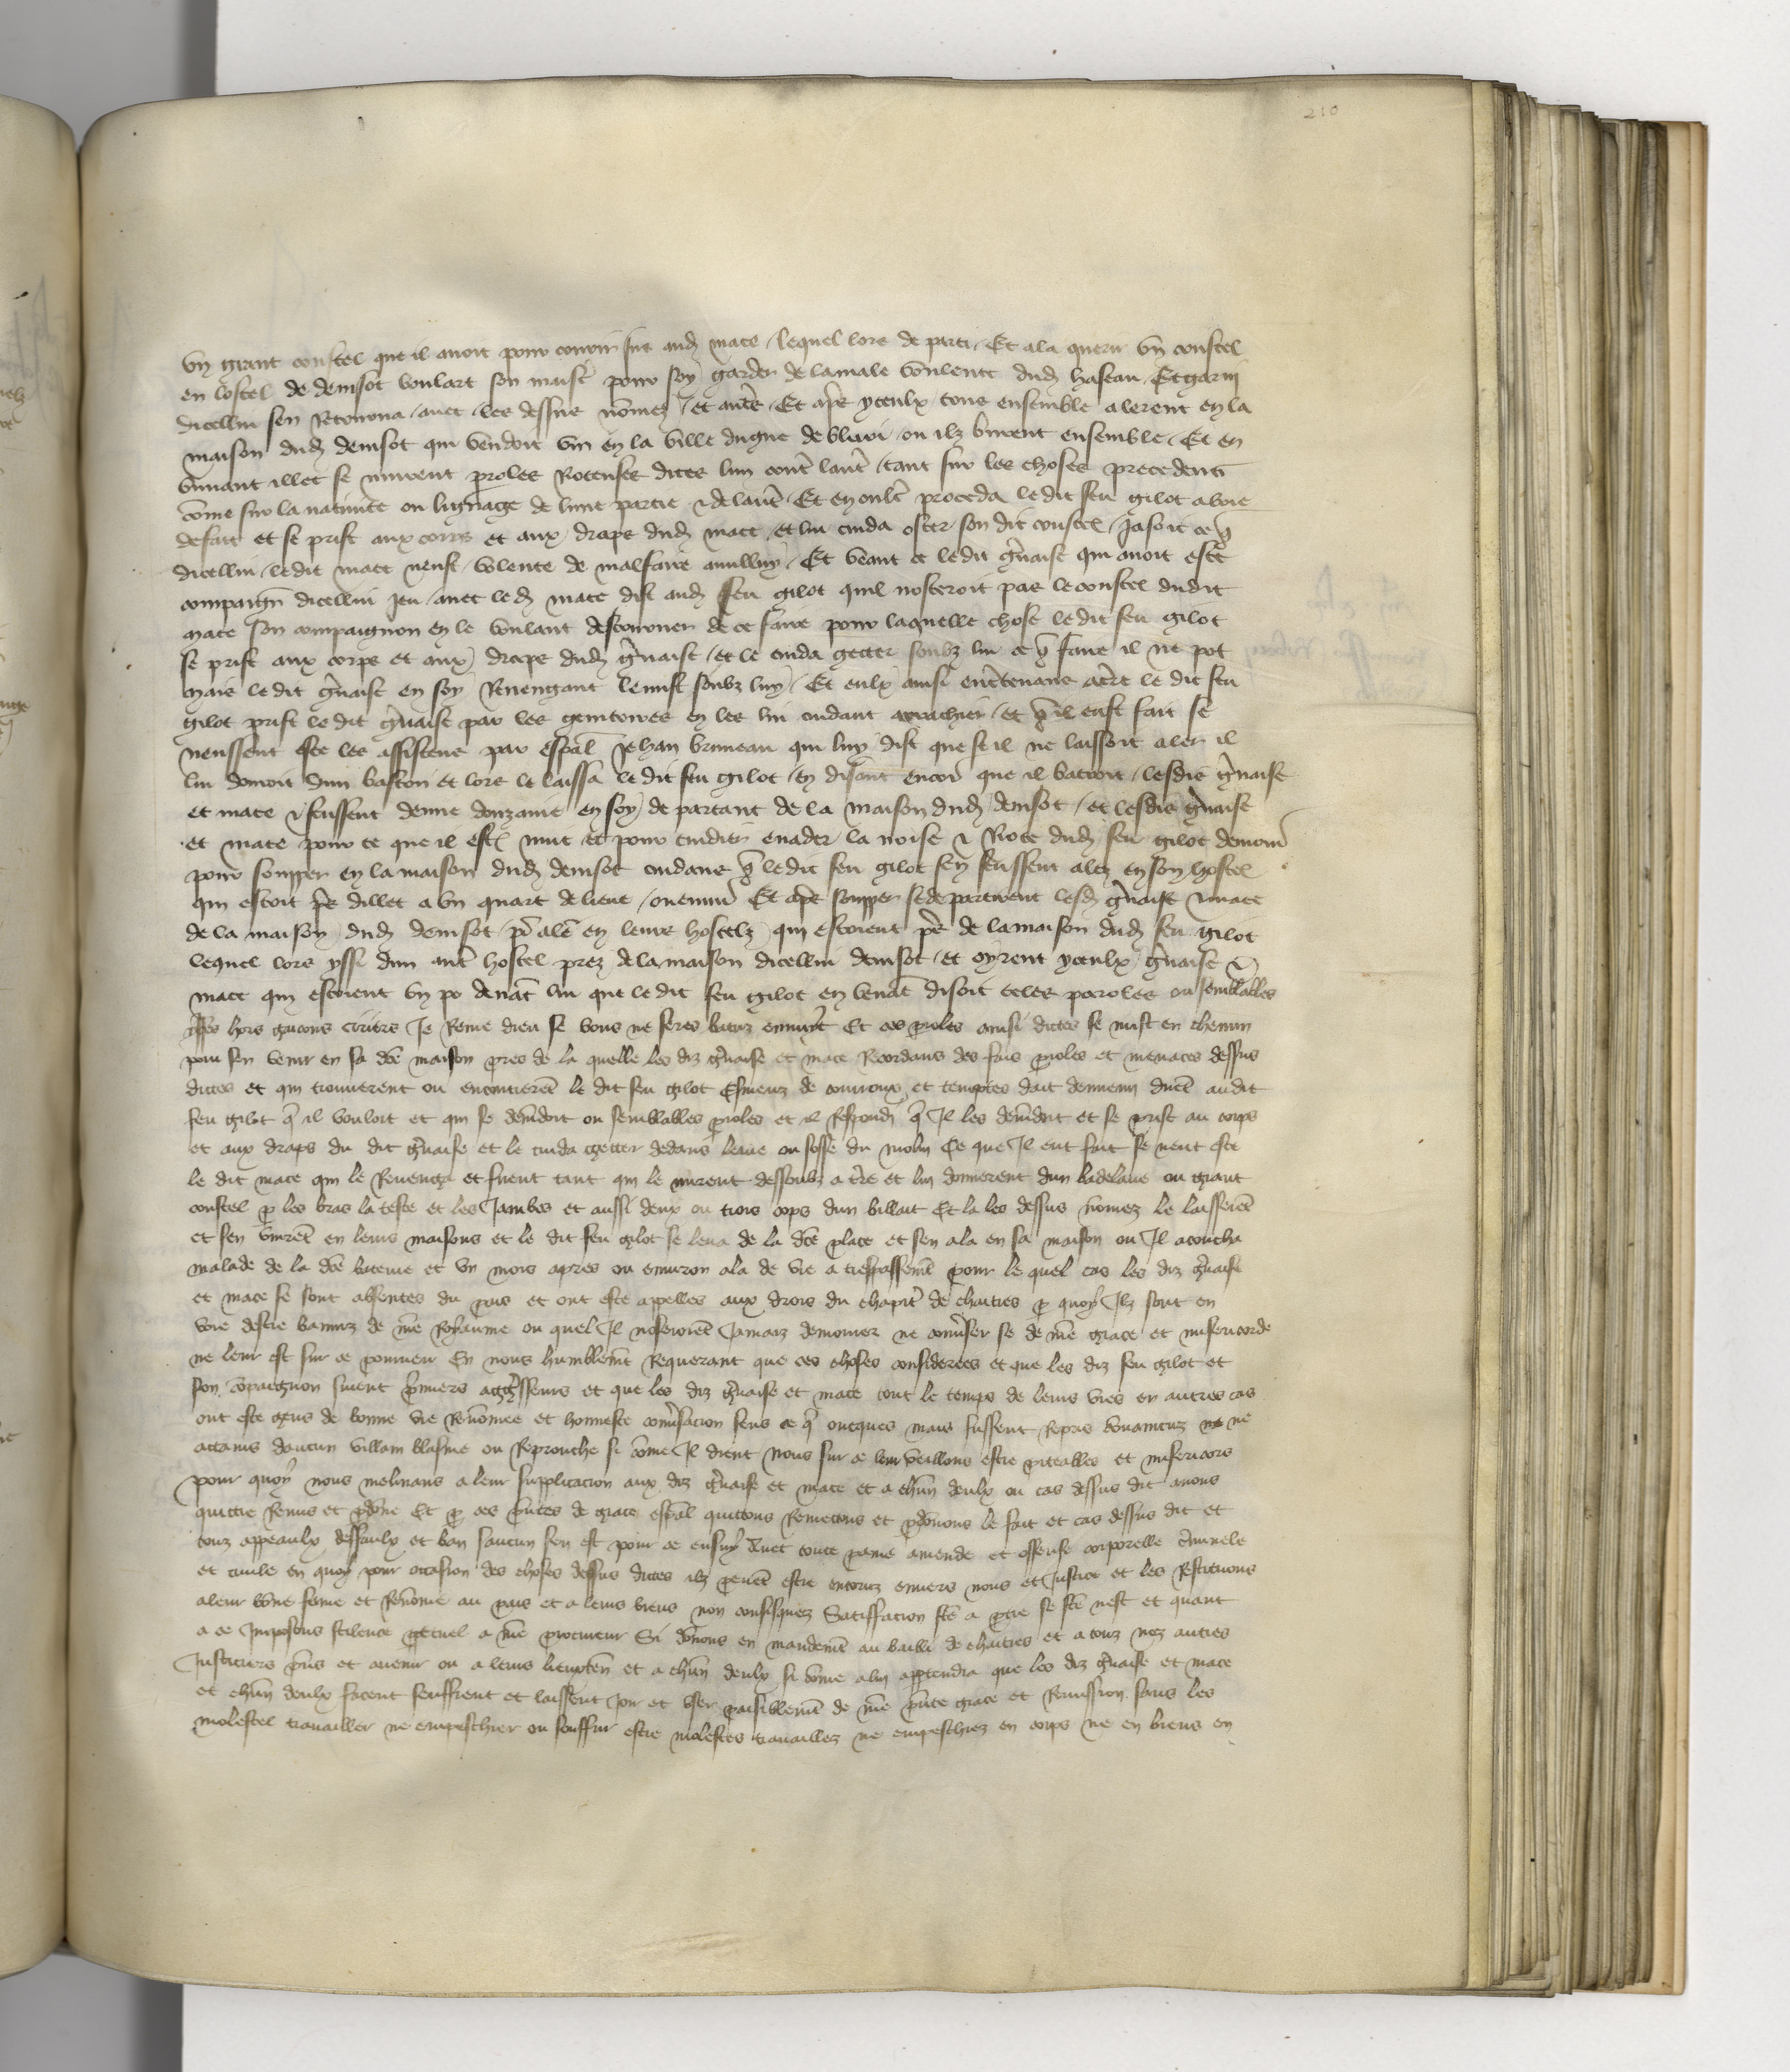 210
un grant coustel que il avoit pour courir sus aud mace / lequel lors se parti / Et ala querir un coustel
en lostel de denisot boulart son maistre pour soy garder de la male voulente dud haseau / Et garni
dicellui sen retourna / avec / les dessus nommez / et autres / Et apres yceulx tous ensemble alerent en la
maison dud denisot qui vendoit vin en la ville ou ilz burent ensemble / Et en
buvant illec se murent proles Roteuses dites lun contre lautre / tant sur les choses precedens
comme sur la nativite ou lignage de lune partie & de lautre / Et en oultre proceda ledit feu gilot a voie
de fait et se prist aux corps et aux draps dud mace / et lui cuida oster son dit coustel / Jasoit ce q
dicellui / ledit mace neust / volente de malfaire a nulluy / Et veant ce ledit gervaise qui avoit este
compaign dicellui Jeu / avec led mace dist aud feu gilot quil nosteroit pas le coustel dudit
mace son compaignon en le voulant destourner de ce faire pour laquelle chose ledit feu gilot
se prist aux corps et aux draps dud gervaise / et le cuida getter soubz lui ce q faire il ne pot
mais ledit gervaise en soy Revengant le mist soubz luy / Et eulx ainsi entretenans a terre le dit feu
gilot prist ledit gervaise par les genitoires en les lui cudant arrachier / et q il eust fait se
neussent este les assistens par espal Jehan bruneau qui luy dist que se il ne laissoit aler il
lui donroit dun baston et lors le laissa ledit feu gilot / en disant encor que il batroit / lesdis gervaise
et mace & feussent demie douzaine en soy de partant de la maison dud denisot / et lesdis gervaise
et mace pour ce que il est nuit et pour cuidier evader la noise & Riote dud feu gilot demour
pour soupper en la maison dud denisot cudans q ledit feu gilot sen feussent alez en son hostel
qui estoit pres dillec a un quart de lieue / ou environ Et apres soupper se departirent lesd gervaise & mace
de la maison dud denisot / pour aler en leurs hostelz qui estoient pres de la maison dud feu gilot
lequel lors yssi dun autre hostel prez de la maison dicellui denisot / et oyrent yceulx gervaise &
mace qui estoient un po devant lui que ledit feu gilot en venant disoit teles paroles ou semblables
hors garcons Je Renie dieu se vous ne seres batuz ennuyt Et ces proles ainsi dictes se mist en chemin
pour sen venir en sa dce maison pres de la quelle les diz gervaise et mace Recordans des fais proles et menaces dessus
dictes et qui trouverent ou encontrerent le dit feu gilot Esmeuz de courroux et temptes dait dennemi dirent audit
feu gilot q il vouloit et qui se demandoit ou semblables proles et il respondi q Il les demandoit et se prist au corps
et aux draps du dit gervaise et le cuida getter dedans leaue ou fosse du molin Ce que Il eut fait se neut este
le dit mace qui le Revencha et furent tant qui le mirent dessoubz a terre et lui donnerent dun badelaire ou grant
coustel p les bras la teste et les Jambes et aussi deux ou trois cops dun billart Et la les dessus nommez le laisserent
et sen vindrent en leurs maisons et le dit feu gilot se leva de la dce place et sen ala en sa maison ou Il acoucha
malade de la dce bateure et un mois apres ou environ ala de vie a trespassement pour le quel cas les diz gervaise
et mace se sont absentes du pais et ont este appelles aux drois du chapitre de chartres p quoy Ilz sont en
voie destre bannuz de nre Royaume ou quel Il noseroient Jamaiz demourer ne converser se de nre grace et misericorde
ne leur est sur ce pourveu En nous humblement Requerant que ces choses considerees et que les diz feu gilot et
son compaignon furent premiers aggresseurs et que les diz gervaise et mace tout le temps de leurs vies en autres cas
ont este gens de bonne vie Renommee et honneste conversacion sens ce q oncques mais fussent Repris convaincuz ne ne
attains daucun villain blasme ou Reprouche si comme Il dient Nous sur ce leur veillons estre piteables et misericors
pour quoy nous inclinans a leur supplicacion aux diz gervaise et mace et a chun deulx ou cas dessus dit avons
quittie Remis et pdonne Et p ces pntes de grace espal quittons Remettons et pdonnons le fait et cas dessus dit et
touz appeaulx deffaulx et ban saucun sen est pour ce ensuy Avec toute paine amende et offense corporelle criminele
et civile en quoy pour occasion des choses dessus dictes ilz pevent estre encoruz envers nous et Justice et les Restituons
a leur bonne fame et Renommee au pais et a leurs biens non confisquez Satiffacion fte a ptie se fte nest et quant
a ce Imposons silence ptuel a nre procureur Si donnons en mandement au bailli de chartres et a touz noz autres
Justiciers pns et avenir ou a leurs lieuxten et a chun deulx si comme a lui apptendra que les diz gervaise et mace
et chun deulx facent seuffrent et laissent Joir et user paisiblement de nre pnte grace et Remission sans les
molester travailler ne empeschier ou souffrir estre molestes travaillez ne empeschiez en corps ne en biens en